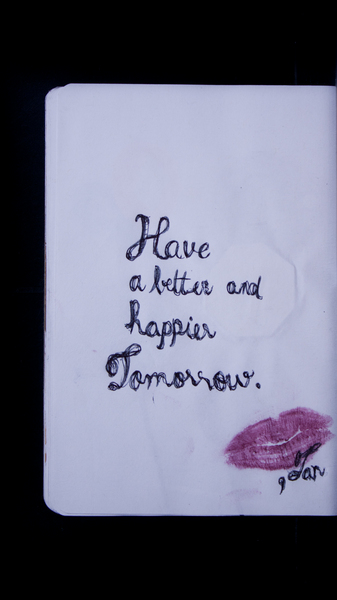 Have
a better and
happier
Tomorrow.